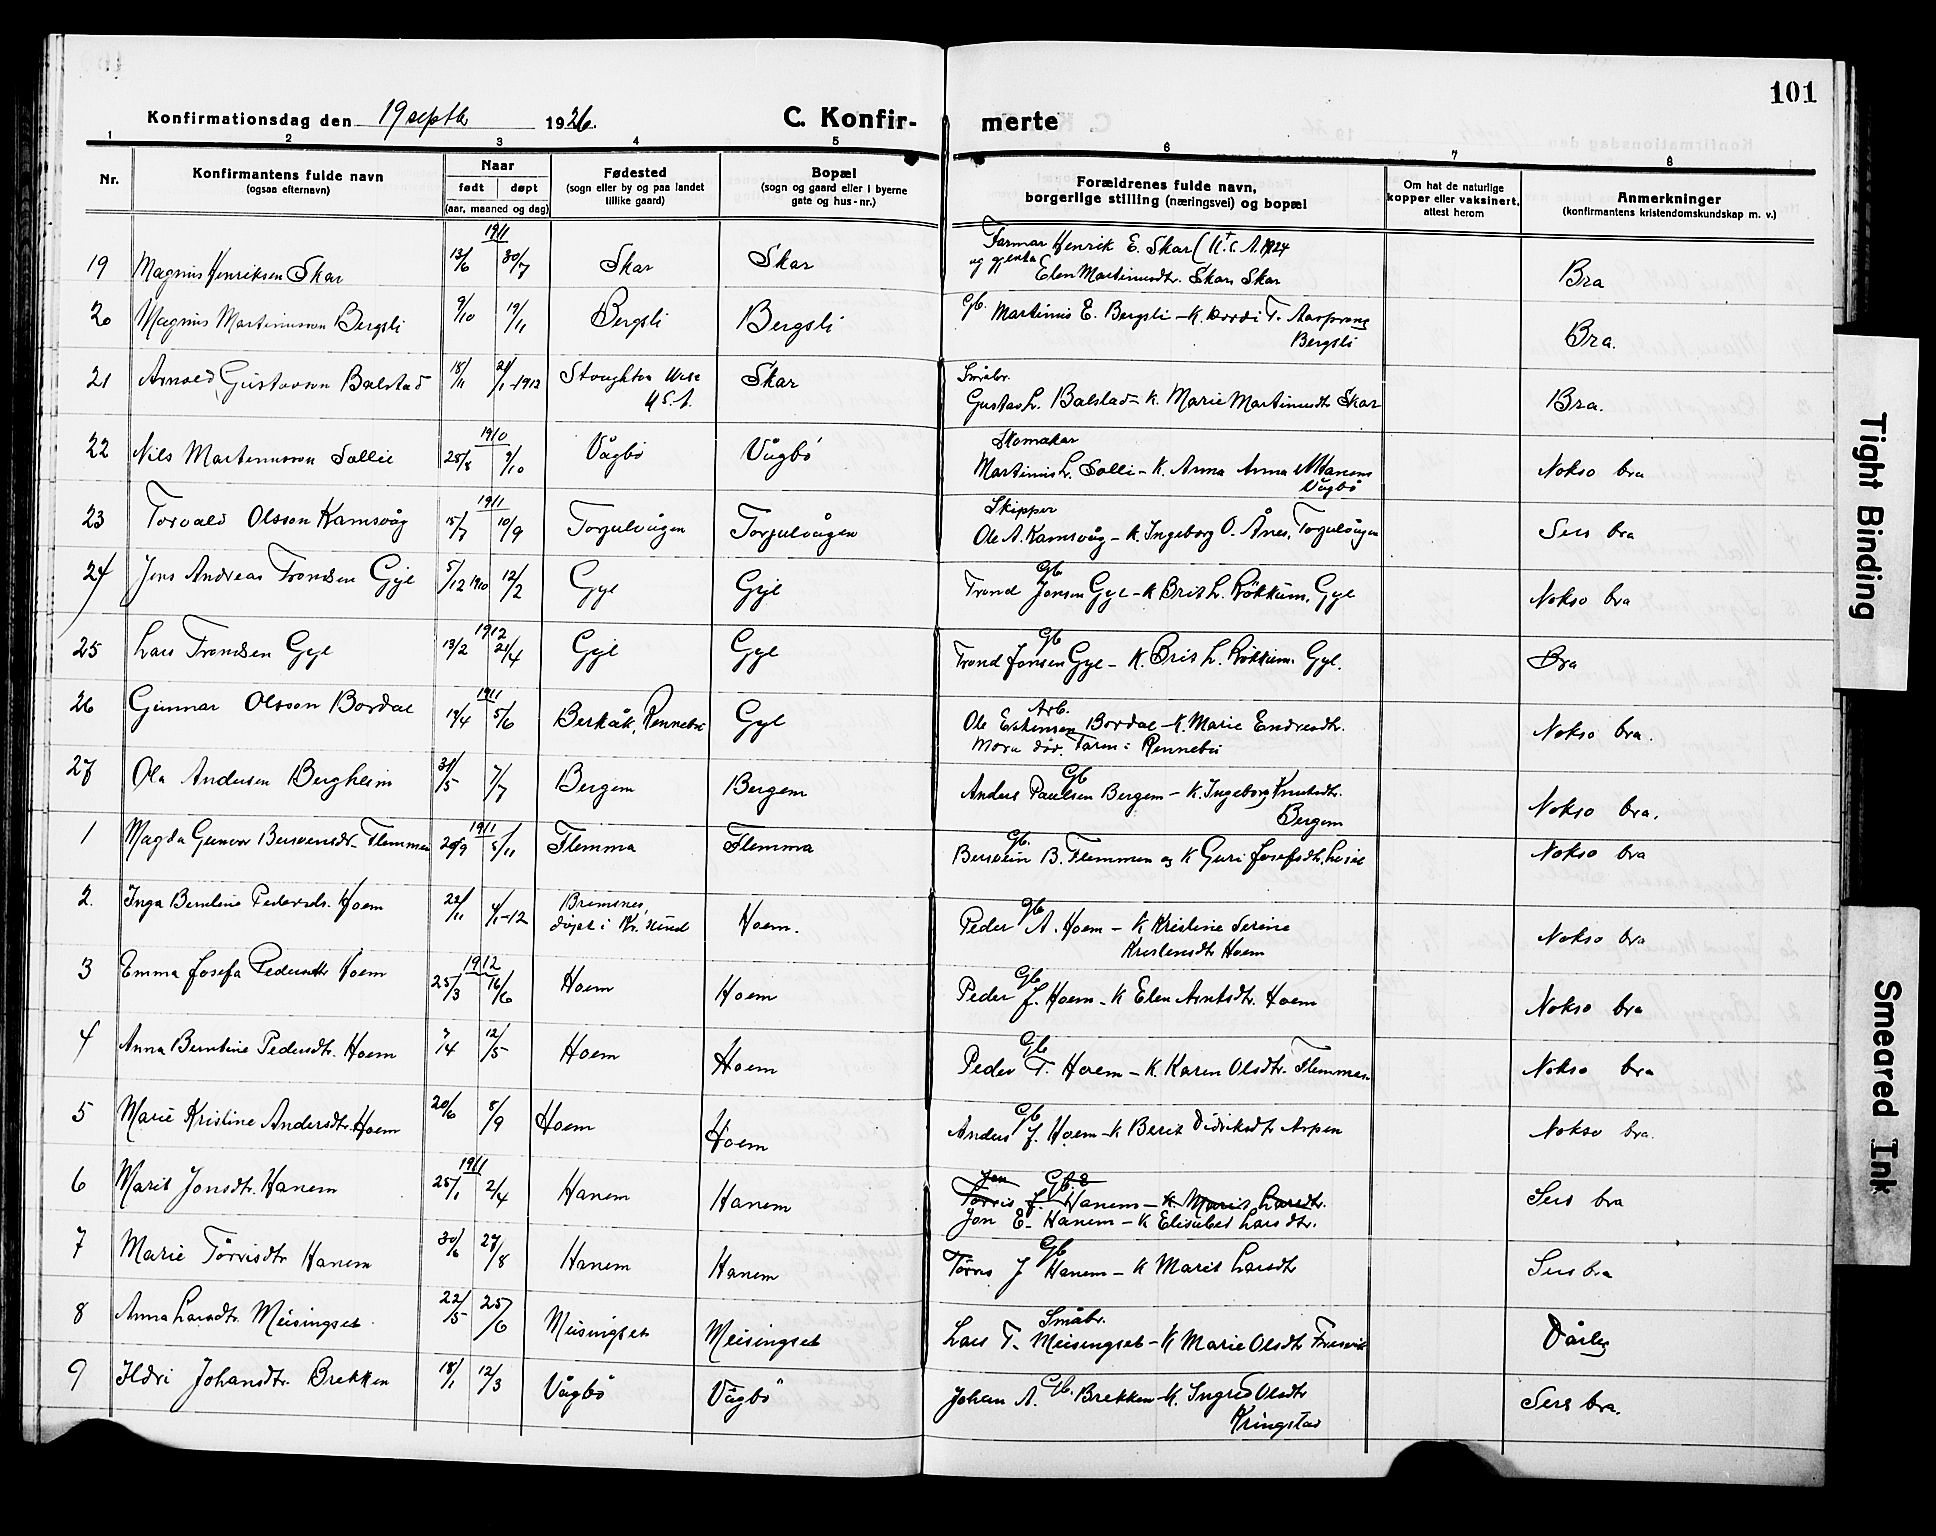 101
Konfirmationsdag den 19 septbr 1926.
C. Konfirmerte
1 2 3 4 5 6 7 8
Nr.
Konfirmantens fulde navn
(ogsaa efternavn)
Naar
født døpt
(aar, maaned og dag)
Fødested
(sogn eller by og paa landet
tillike gaard)
Bopæl
(sogn og gaard eller i byerne
gate og hus-nr.)
Forældrenes fulde navn,
borgerlige stilling (næringsvei) og bopæl
Om hat de naturlige
kopper eller vaksinert,
attest herom
Anmerkninger
(konfirmantens kristendomskundskap m. v.)
1911
19 Magnus Henriksen Skar 13/6 30/7 Skar Skar Farmar Henrik E. Skar (U.S.A. 1924
og gjenta Elen Martinusdtr. Skar, Skar Bra
20 Magnus Martinusson Bergsli 9/10 19/11 Bergsli Bergsli Gb. Martinus E. Bergsli - K. Dordi T. Aasprong
Bergsli Bra.
21 Arnold Gustavson Balstad 18/11 21/1-1912 Stoughton Wisc
U.S.A. Skar Småbr.
Gustav L. Balstad - K. Marie Martinusdtr Skar Bra.
1910
22 Nils Martinusson Sollie 25/8 9/10 Vågbö Vågbö Skomakar
Martinus L. Solli - K. Anna Hanem
Vågbö Nokso bra
1911
23 Torvald Olsson Kamsvåg 15/7 10/9 Torjulvågen Torjulvågen Skipper
Ole A. Kamsvåg - K. Ingeborg O. Ånes, Torjulvågen Sers bra
24 Jens Andreas Trondsen Gyl 5/12 1910 12/2 Gyl Gyl Gb
Trond Jonsen Gyl - K Brit L. Rökkum, Gyl Nokso bra
1912
25 Lars Trondsen Gyl 13/2 21/4 Gyl Gyl Gb
Trond Jonsen Gyl - K. Brit L. Rökkum. Gyl. Bra
1911
26 Gunnar Olsson Bordal 19/4 5/6 Berkåk, Rennebu Gyl Arb.
Ole Estensen Bordal - K. Marie Endresdtr.
Mora död. Faren i Rennebu Nokso bra.
27 Ola Andersen Bergheim 31/5 7/7 Bergem Bergem Gb
Anders Paulsen Bergem - K. Ingeborg Knutsdtr.
Bergem Nokso bra.
1911
1 Magda Gunvor Bersvensdr. Flemmen 20/9 5/11 Flemma Flemma Gb.
Bersvein B. Flemmen og K Guri Josefsdtr. Nokso bra
2. Inga Berntine Pedersdr. Hoem 22/11 4/1-12 Bremsnes,
döpt i Kr.sund Hoem. Gb
Peder A. Hoem - K Kristine Serine
Kristensdtr Hoem Nokso bra
1912
3 Emma Josefa Pedersdtr Hoem 25/3 16/6 Hoem Hoem Gb
Peder J. Hoem - K Elen Arntsdtr. Hoem Nokso bra
4 Anna Berntine Pedersdtr. Hoem 7/4 12/5 Hoem Hoem Gb
Peder T. Hoem - K. Karen Olsdtr. Flemmen Nokso bra
5 Marie Kristine Andersdtr. Hoem 20/6 8/9 Hoem Hoem Gb
Anders J. Hoem - K Berit Didriksdtr Aspen Nokso bra.
1911
6 Marit Jonsdtr. Hanem 25/1 2/4 Hanem Hanem Jon Gb. E
Törris J. Hanem - K Marit Larsdtr.
Jon E. Hanem - K Elisabed Larsdtr. Sers bra
7 Marie Törrisdtr Hanem 30/6 27/8 Hanem Hanem Gb
Törris J Hanem - K Marit Larsdtr Sers bra
8 Anna Larsdtr. Meisingset 22/5 25/6 Meisingset Meisingset Småbr.
Lars T. Meisingset - K Marie Olsdtr Dårleg
9 Ildri Johansdtr. Brekken 18/1 12/3 Vågbö Vågbö Johan A. Gb. Brekken - K. Ingrid Olsdtr
Kringstad Sers bra.
Tight Binding
Smeared Ink